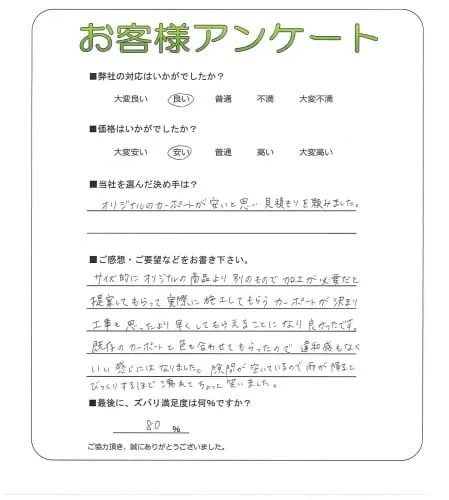 お客様アンケート
■弊社の対応はいかがでしたか？
大変良い 良い 普通 不満 大変不満
■価格はいかがでしたか？
大変安い 安い 普通 高い 大変高い
■当社を選んだ決め手は？
オリジナルのカーポートが安いと思い見積もりを頼みました。
■ご感想・ご要望などをお書き下さい。
サイズ的にオリジナルの商品より別のもので加工が必要だと
提案してもらって実際に施工してもらうカーポートが決まり
工事も思ったより早くしてもらえることになり良かったです。
既存のカーポートと色も合わせてもらったので違和感もなく
いい感じにはなりました。隙間が空いているので雨が降ると
びっくりするほど濡れてちょっと笑いました。
■最後に、ズバリ満足度は何％ですか？
80 ％
ご協力頂き、誠にありがとうございました。